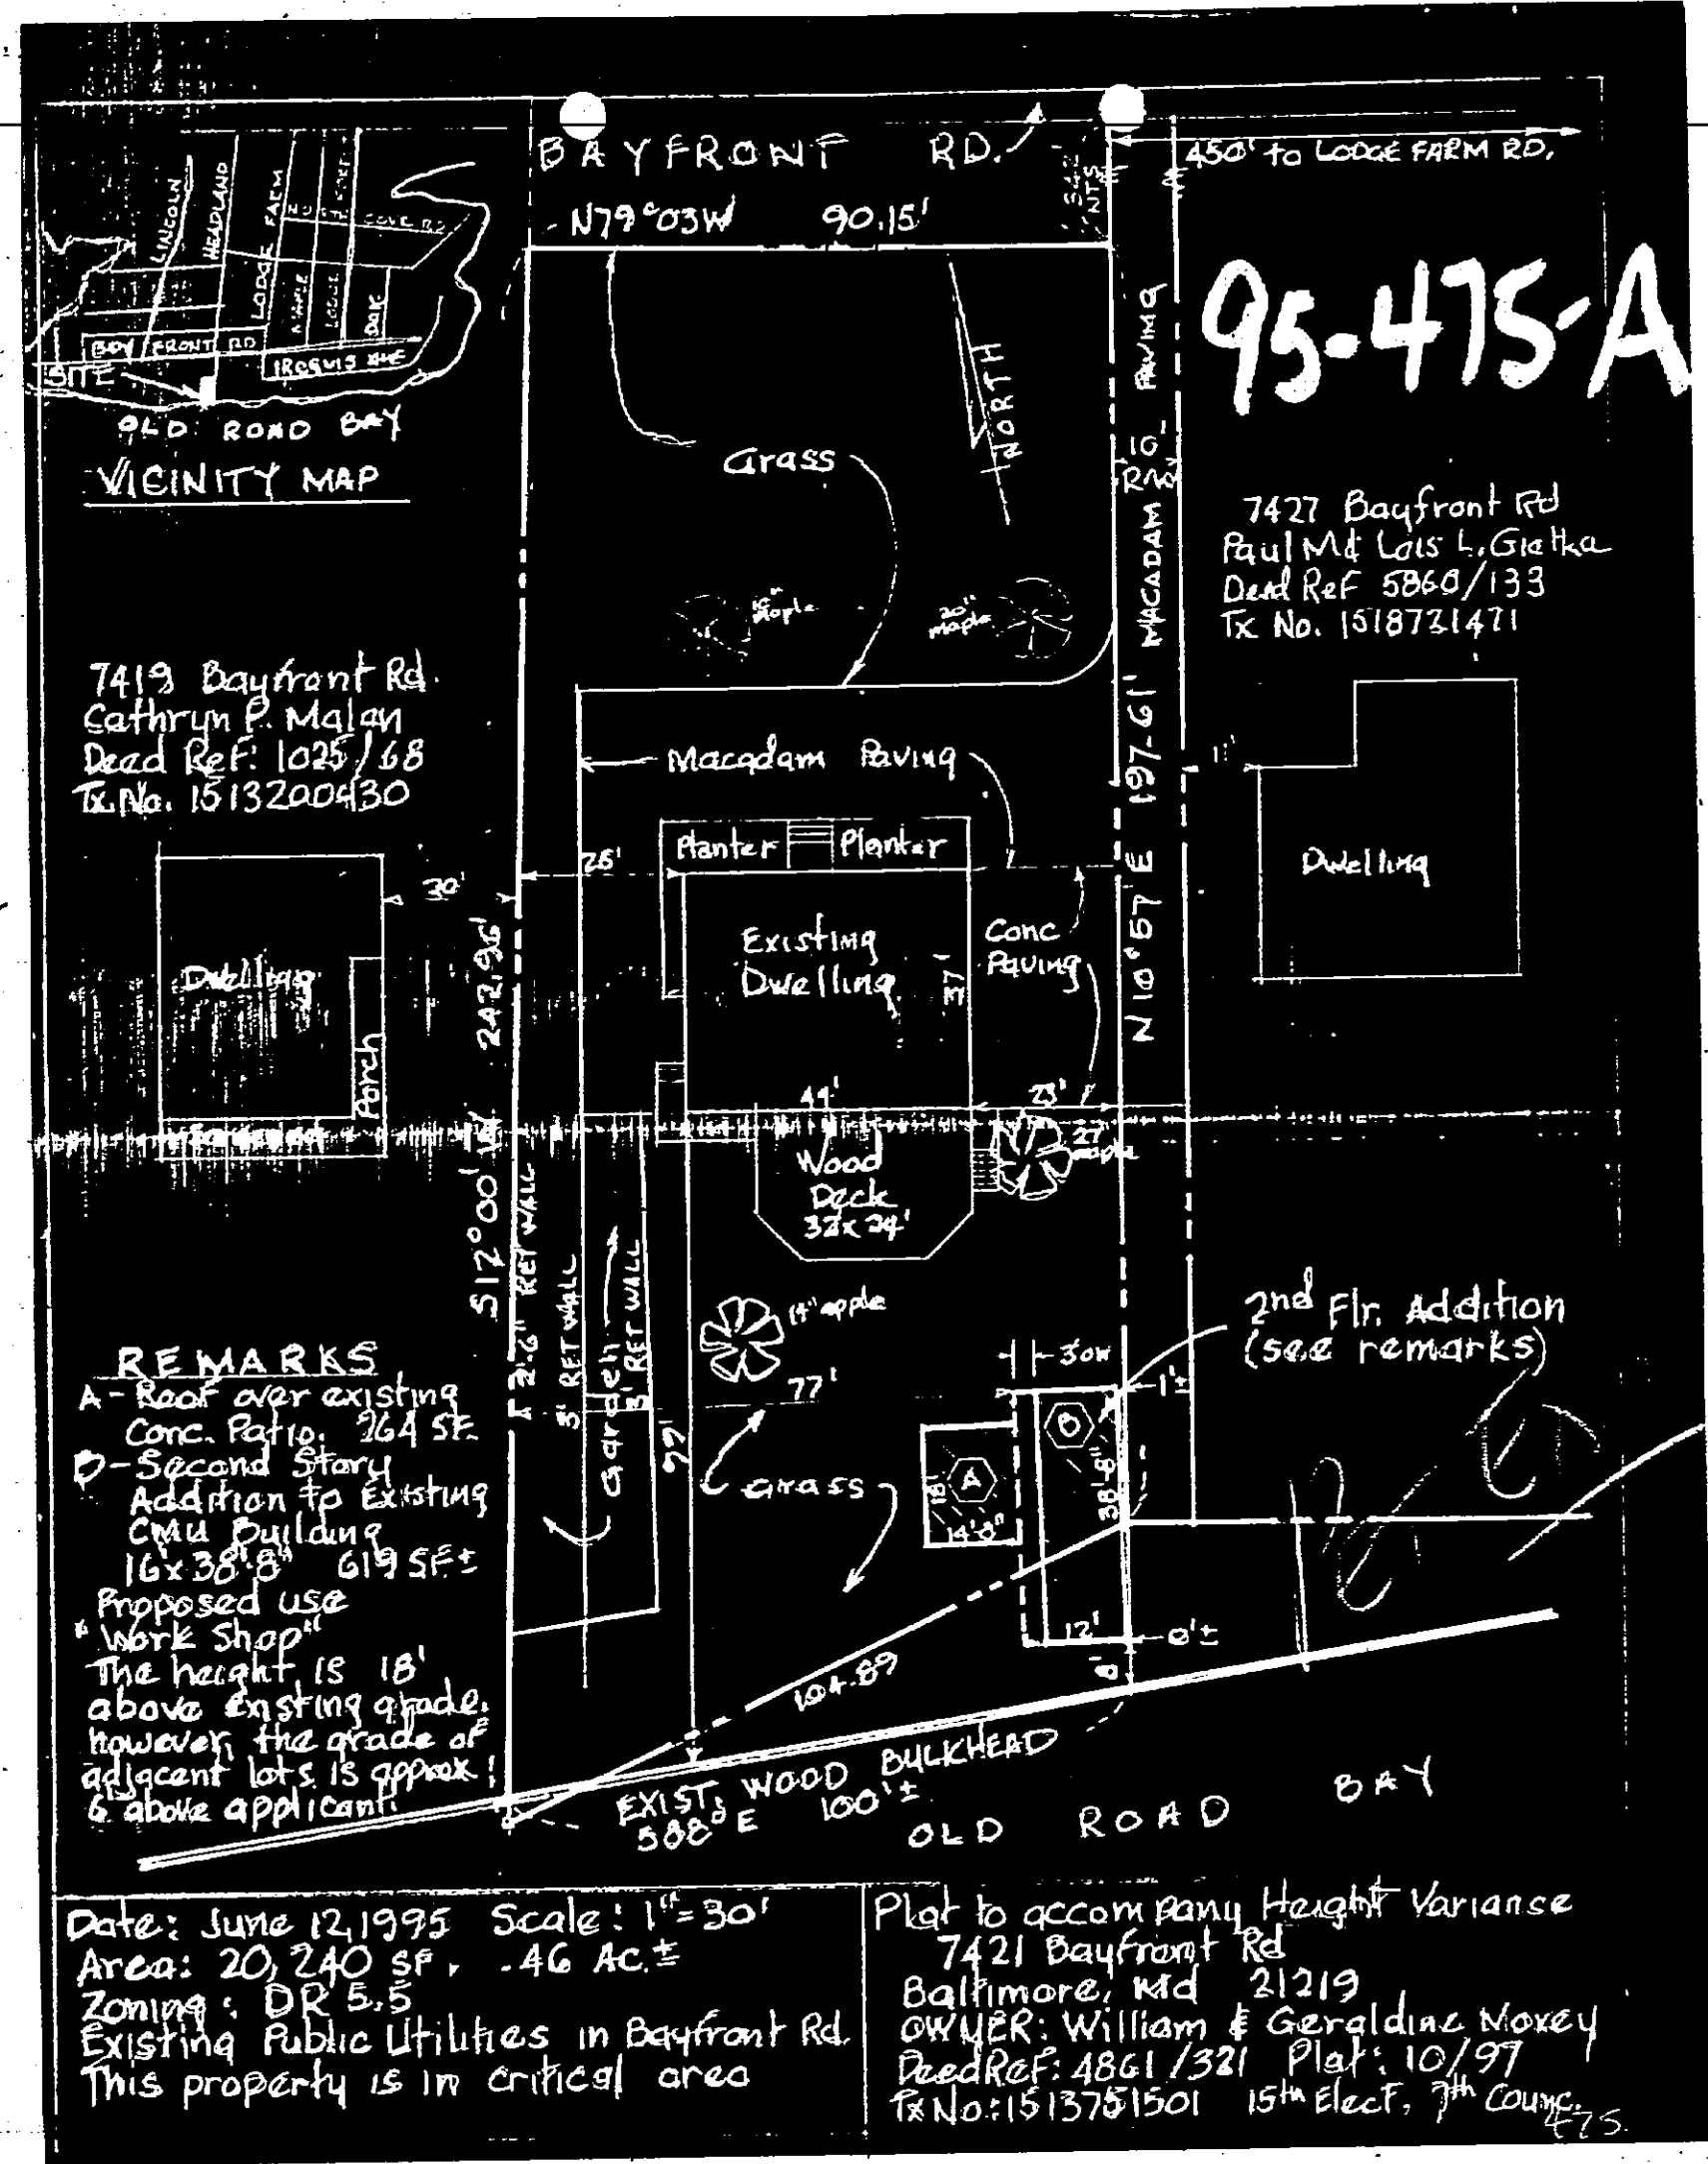 BAYFRONT RD.
450' to LODGE FARM RD.
N79°03W 90.15'
95-475-A
LINCOLN
HEADLAND
LODGE FARM
COVE RD
MAPLE
LODGE
OAK
BAY FRONT RD
IROQUIS AVE
SITE
OLD ROAD BAY
VICINITY MAP
NTS
NORTH
Grass
10'
R/W
MACADAM PAVING
N 10°57' E 197.61'
7427 Bayfront Rd
Paul M & Lois L. Gietka
Deed Ref 5860/133
Tx No. 1518731471
maple
20" maple
7419 Bayfront Rd.
Cathryn P. Malan
Deed Ref: 1025/68
Tx. No. 1513200430
Macadam Paving
11'
Planter Planter
25'
30'
Dwelling
Existing
Dwelling
37'
Conc
Paving
Dwelling
Porch
44'
23'
27" maple
Wood
Deck
32x24'
S12°00'W 242.96'
2'-6" RET WALL
3' RET WALL
Garden
3' RET WALL
14" apple
77'
99'
Grass
2nd Flr. Addition
(see remarks)
3'OH
1'±
B
A
18'
14'-8"
38'-8"
12'
0'±
8'
104.89
EXIST. WOOD BULKHEAD
S88° E 100'±
OLD ROAD BAY
REMARKS
A - Roof over existing
Conc. Patio. 264 SF.
B - Second Story
Addition to Existing
CMU Building
16'x38'-8" 619 SF±
Proposed use
"Work Shop"
The height is 18'
above existing grade.
however, the grade of
adjacent lots is approx
6' above applicant.
Date: June 12, 1995 Scale: 1"=30'
Area: 20,240 SF, .46 AC.±
Zoning: DR 5.5
Existing Public Utilities in Bayfront Rd.
This property is in critical area
Plat to accompany Height Varianse
7421 Bayfront Rd
Baltimore, Md 21219
OWNER: William & Geraldine Moxey
Deed Ref: 4861/321 Plat: 10/97
Tx No: 1513751501 15th Elect, 7th Counc.
475